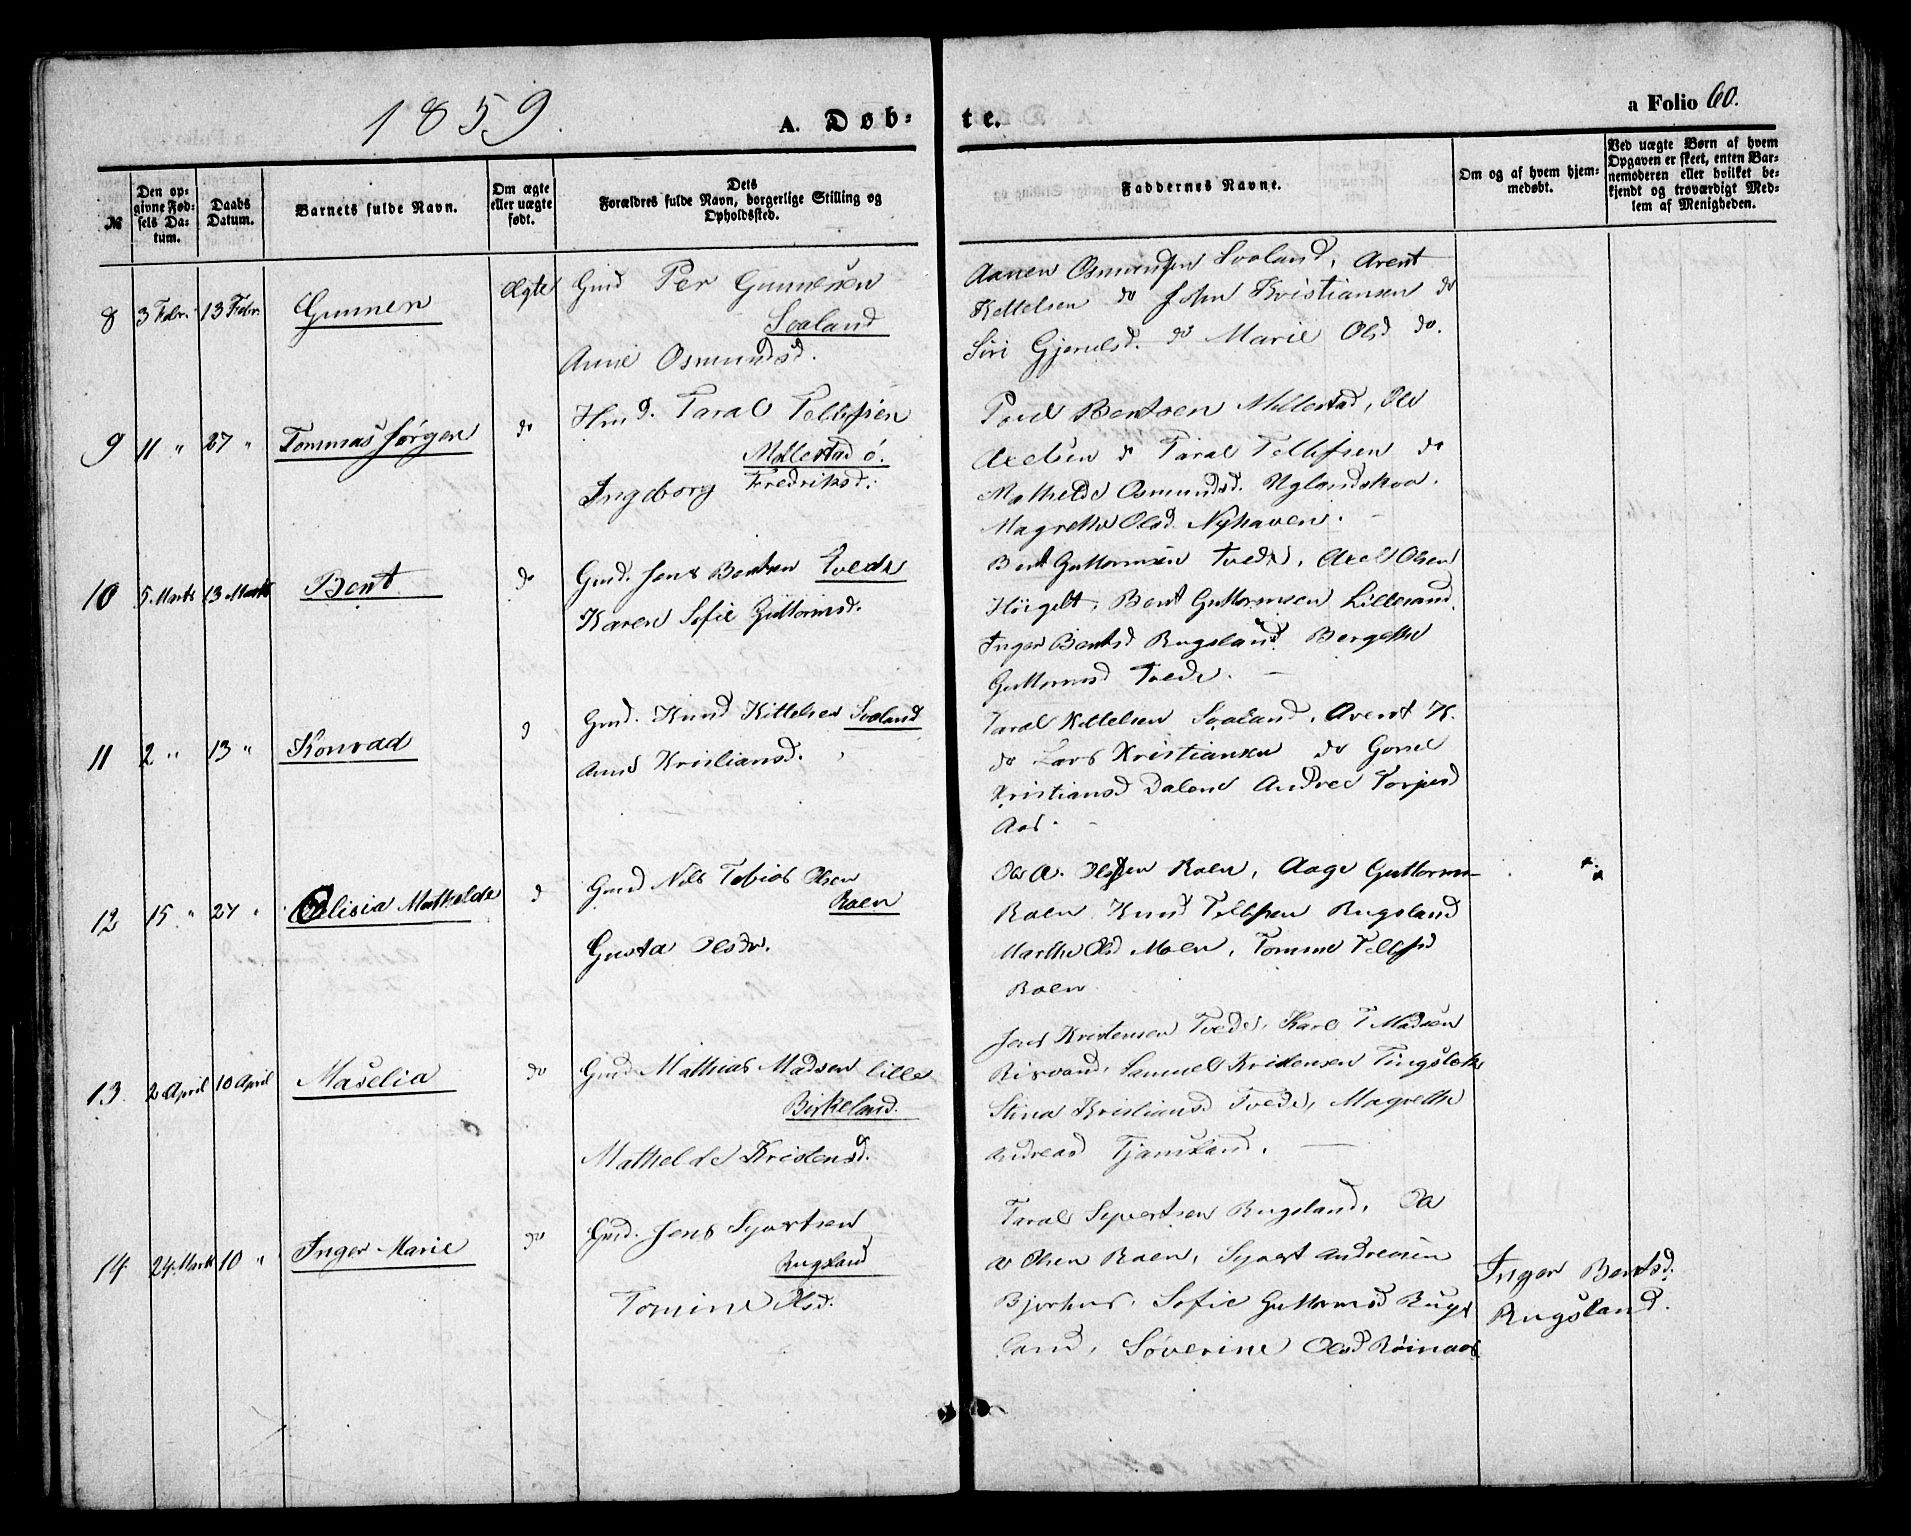 1859.
A. Døb-
te.
a Folio 60.
№
Den op-
givne Fød-
sels Da-
tum.
Daabs
Datum.
Barnets fulde Navn.
Om ægte
eller uægte
født.
Dets
Forældres fulde Navn, borgerlige Stilling og
Opholdssted.
Faddernes Navne.
Om og af hvem hjem-
medøbt.
Ved uægte Børn af hvem
Opgaven er skeet, enten Bar-
nemoderen eller hvilket be-
kjendt og troværdigt Med-
lem af Menigheden.
8
3 Febr.
13 Febr.
Gunner
Ægte
Gmd Per Gunnersen
Svaland
Anne Osmundsd.
Aanen Osmundsen Svaland, Arent
Kettelsen do John Kristiansen do
Siri Gjerulsd. do Marie Olsd do.
9
11 "
27 "
Tommas Jørgen
do
Hmd. Taral Tellefsen
Mollestad ø.
Ingeborg Fredriksd.
Poul Bentsen Mollestad, Ole
Axelsen do Taral Tellefsen do
Mathilde Osmundsd. Uglandskoa.
Magrethe Olsd Nyhaven.
10
5 Marts
13 Marts
Bent
do
Gmd. Jens Bentsen Tvede
Karen Sofie Guttormsd.
Bent Guttormsen Tvede, Axel Olsen
Høigilt, Bent Guttormsen Lillesand.
Inger Bentsd Rugsland Bergethe
Guttormsd Tvede.
11
2 "
13 "
Konrad
d
Gmd. Knud Kittelsen Svaland
Anne Kristiansd.
Taral Kittelsen Svaland, Arent K.
do Lars Kristiansen do Gonel
Kristiansd Dalene Andrea Torjusd
Aas.
12
15 "
27 "
Elisia Mathilde
d
Gmd Nils Tobias Olsen
Roen
Gusta Olsdr.
Ole A. Olsen Roen, Aage Guttorms-
Roen Knud Tellefsen Rugsland
Marthe Olsd Moen, Tomine Tellefsd
Roen
13.
2 April
10 April
Maselia
do
Gmd Mathias Madsen lille
Birkeland.
Mathilde Kristensd.
Jens Kristensen Tvede, Karl T. Madsen
Risvand, Samuel Kristensen
Stina Kristiansd Tvede, Magrethe
Andreasd Tjamsland.
14
24 Marts
10 "
Inger Marie
do
Gmd. Jens Syvertsen
Rugsland
Tomine Olsd.
Taral Syvertsen Rugsland, Ole
A Olsen Roen, Syvert Andreasen
Bjorhus, Sofie Guttormsd Rugs
land, Søverine Olsd Røinaas
Inger Bentsd.
Rugsland.